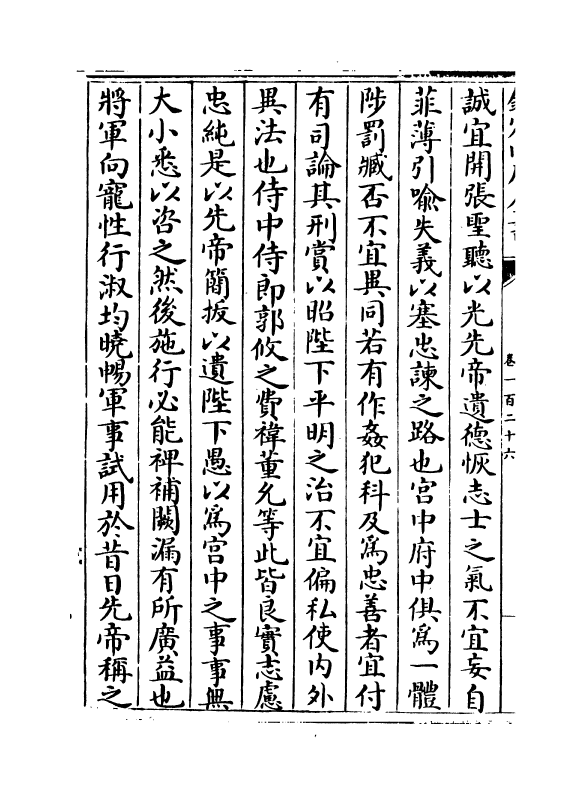 誠宜開張聖聽以光先帝遺德恢志士之氣不宜妄自
菲薄引喻失義以塞忠諫之路也宫中府中俱為一體
陟罰臧否不宜異同若有作姦犯科及為忠善者宜付
有司論其刑賞以昭陛下平明之治不宜偏私使内外
異法也侍中侍郎郭攸之費禕董允等此皆良實志慮
忠純是以先帝簡拔以遺陛下愚以為宫中之事事無
大小悉以咨之然後施行必能裨補闕漏有所廣益也
將軍向寵性行淑均曉暢軍事試用於昔日先帝稱之
卷一百二十六